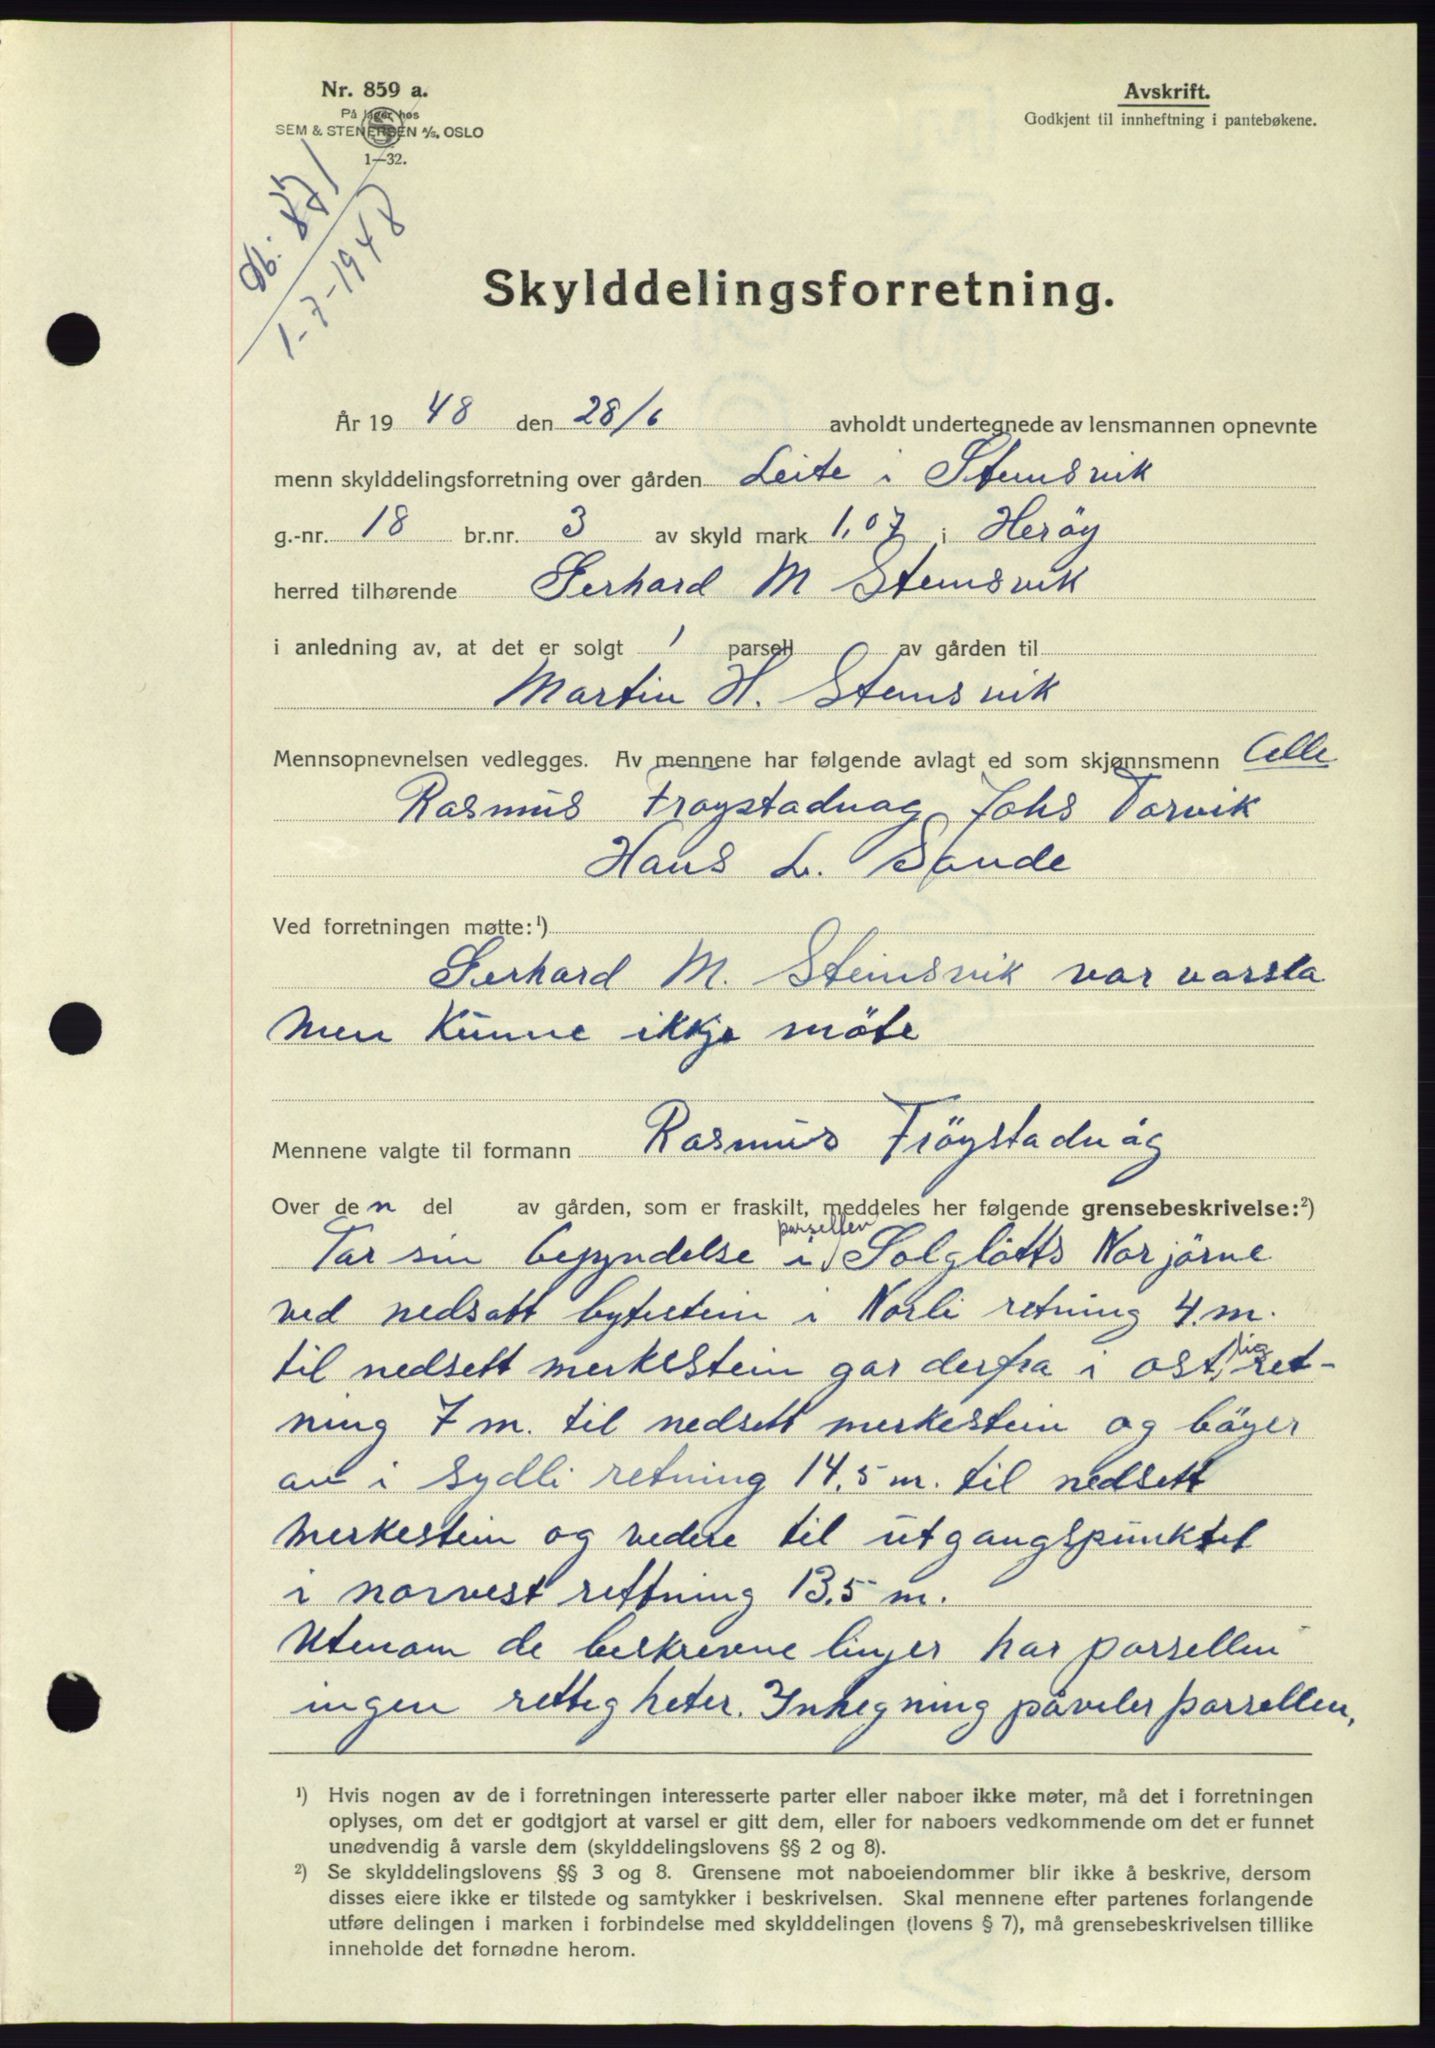 Nr. 859 a.
På lager hos
SEM & STENERSEN A/S, OSLO
1—32.
Avskrift.
Godkjent til innheftning i pantebøkene.
Db: 871
1-7-1948
Skylddelingsforretning.
År 1948 den 28/6 avholdt undertegnede av lensmannen opnevnte
menn skylddelingsforretning over gården Leite i Steinsvik
g.-nr. 18 br.nr. 3 av skyld mark 1,07 i Herøy
herred tilhørende Gerhard M Steinsvik
i anledning av, at det er solgt 1 parsell av gården til
Martin H. Steinsvik
Mennsopnevnelsen vedlegges. Av mennene har følgende avlagt ed som skjønnsmenn Alle
Rasmus Frøystadvåg Johs Torvik
Hans L. Sande
Ved forretningen møtte:¹)
Gerhard M. Steinsvik var varsla
men kunne ikkje möte
Mennene valgte til formann Rasmus Fröystadvåg
Over den del av gården, som er fraskilt, meddeles her følgende grensebeskrivelse:²)
Tar sin begyndelse i parsellen Solglötts Norjörne
ved nedsatt bytestein i Norli retning 4. m.
til nedsett merkestein gar derfra i ostlig ret-
ning 7 m. til nedsett merkestein og böyer
av i sydli retning 14,5 m. til nedsett
merkestein og vedere til utgangspunktet
i norvest rettning 13,5 m.
Utenom de beskrevne linjer har parsellen
ingen rettigheter. Inhegning påviler parsellen.
¹) Hvis nogen av de i forretningen interesserte parter eller naboer ikke møter, må det i forretningen
oplyses, om det er godtgjort at varsel er gitt dem, eller for naboers vedkommende om det er funnet
unødvendig å varsle dem (skylddelingslovens §§ 2 og 8).
²) Se skylddelingslovens §§ 3 og 8. Grensene mot naboeiendommer blir ikke å beskrive, dersom
disses eiere ikke er tilstede og samtykker i beskrivelsen. Skal mennene efter partenes forlangende
utføre delingen i marken i forbindelse med skylddelingen (lovens § 7), må grensebeskrivelsen tillike
inneholde det fornødne herom.